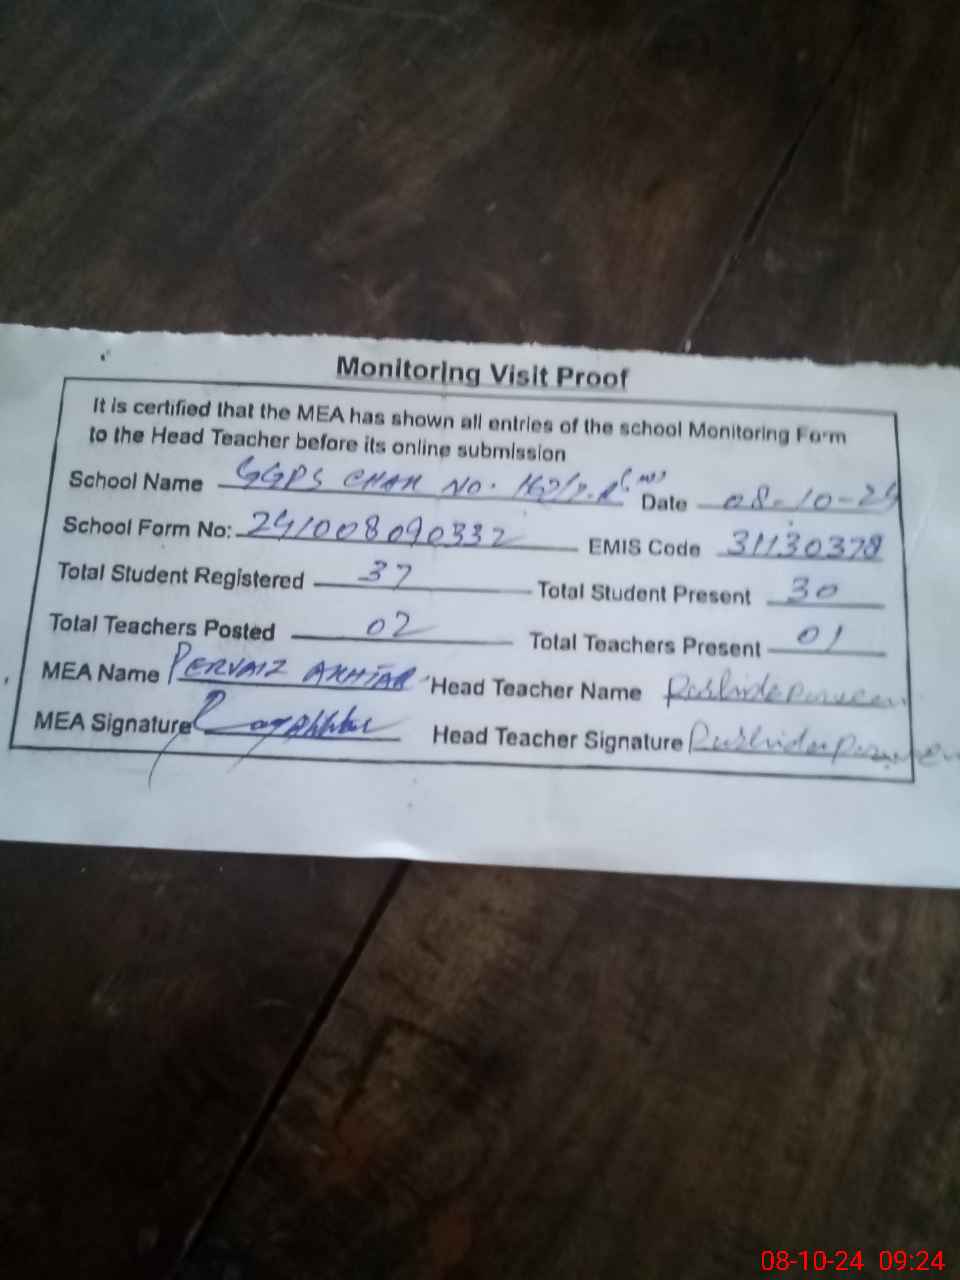 Monitoring Visit Proof
It is certified that the MEA has shown all entries of the school Monitoring Form
to the Head Teacher before its online submission
School Name GGPS CHAK NO. Date 08-10-24
School Form No: 241008090332 EMIS Code 31130378
Total Student Registered 37 Total Student Present 30
Total Teachers Posted 02 Total Teachers Present 01
MEA Name PERVAIZ AKHTAR Head Teacher Name
MEA Signature Head Teacher Signature
08-10-24 09:24